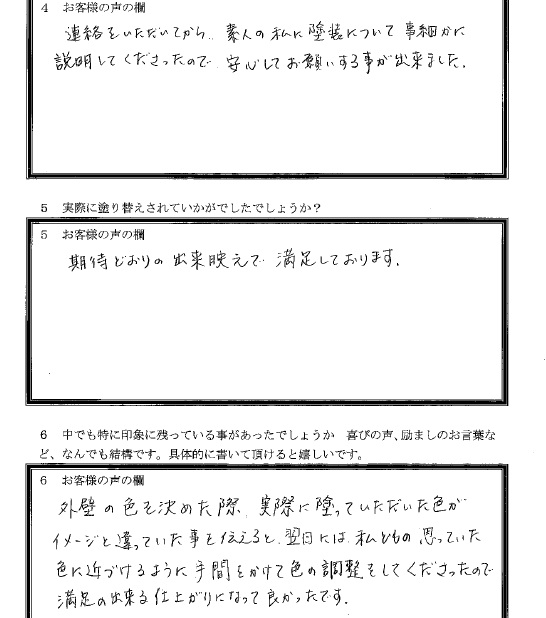 4 お客様の声の欄
連絡をいただいてから、素人の私に塗装について事細かに
説明してくださったので、安心してお願いする事が出来ました。
5 実際に塗り替えされていかがでしたでしょうか？
5 お客様の声の欄
期待どおりの出来映えで満足しております。
6 中でも特に印象に残っている事があったでしょうか 喜びの声、励ましのお言葉な
ど、なんでも結構です。具体的に書いて頂けると嬉しいです。
6 お客様の声の欄
外壁の色を決めた際、実際に塗っていただいた色が
イメージと違っていた事を伝えると、翌日には、私どもの思っていた
色に近づけるように手間をかけて色の調整をしてくださったので
満足の出来る仕上がりになって良かったです。